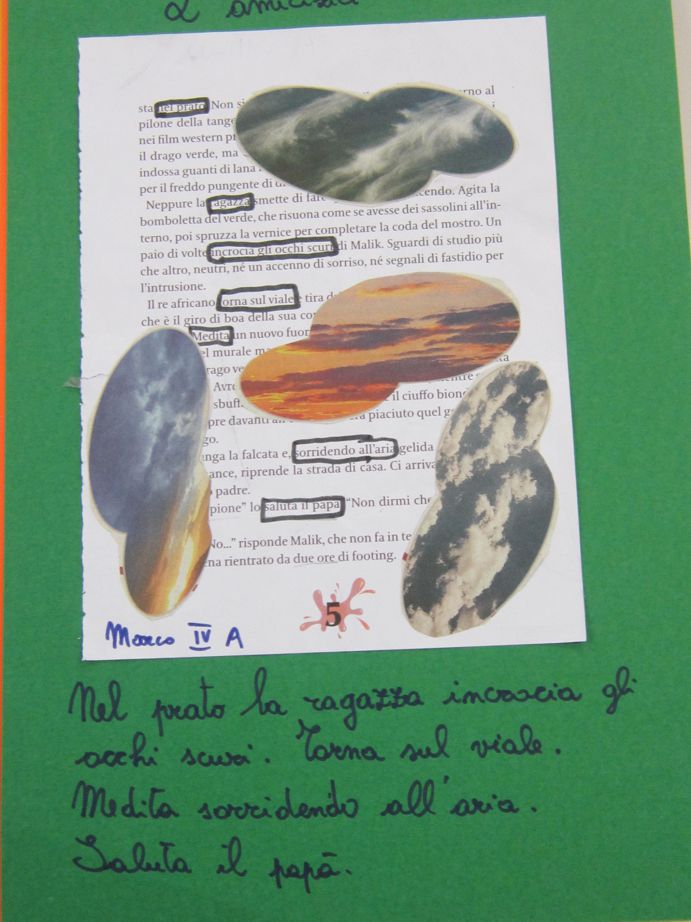 L'amicizia
sta nel prato. Non si
pilone della tange
nei film western pr
il drago verde, ma
indossa guanti di lana
per il freddo pungente di
Neppure la ragazza smette di far cendo. Agita la
bomboletta del verde, che risuona come se avesse dei sassolini all'in-
terno, poi spruzza la vernice per completare la coda del mostro. Un
paio di volte incrocia gli occhi scuri di Malik. Sguardi di studio più
che altro, neutri, né un accenno di sorriso, né segnali di fastidio per
l'intrusione.
Il re africano torna sul viale e tira d
che è il giro di boa della sua co
Medita un nuovo fuor
el murale ma
rago ve
Avre
sbuff il ciuffo bion
pre davanti a piaciuto quel g
go.
nga la falcata e, sorridendo all'aria gelida
ance, riprende la strada di casa. Ci arriva
padre.
pione" lo saluta il papà. "Non dirmi che
No..." risponde Malik, che non fa in te
na rientrato da due ore di footing.
5
Marco IV A
Nel prato la ragazza incrocia gli
occhi scuri. Torna sul viale.
Medita sorridendo all'aria.
Saluta il papà.